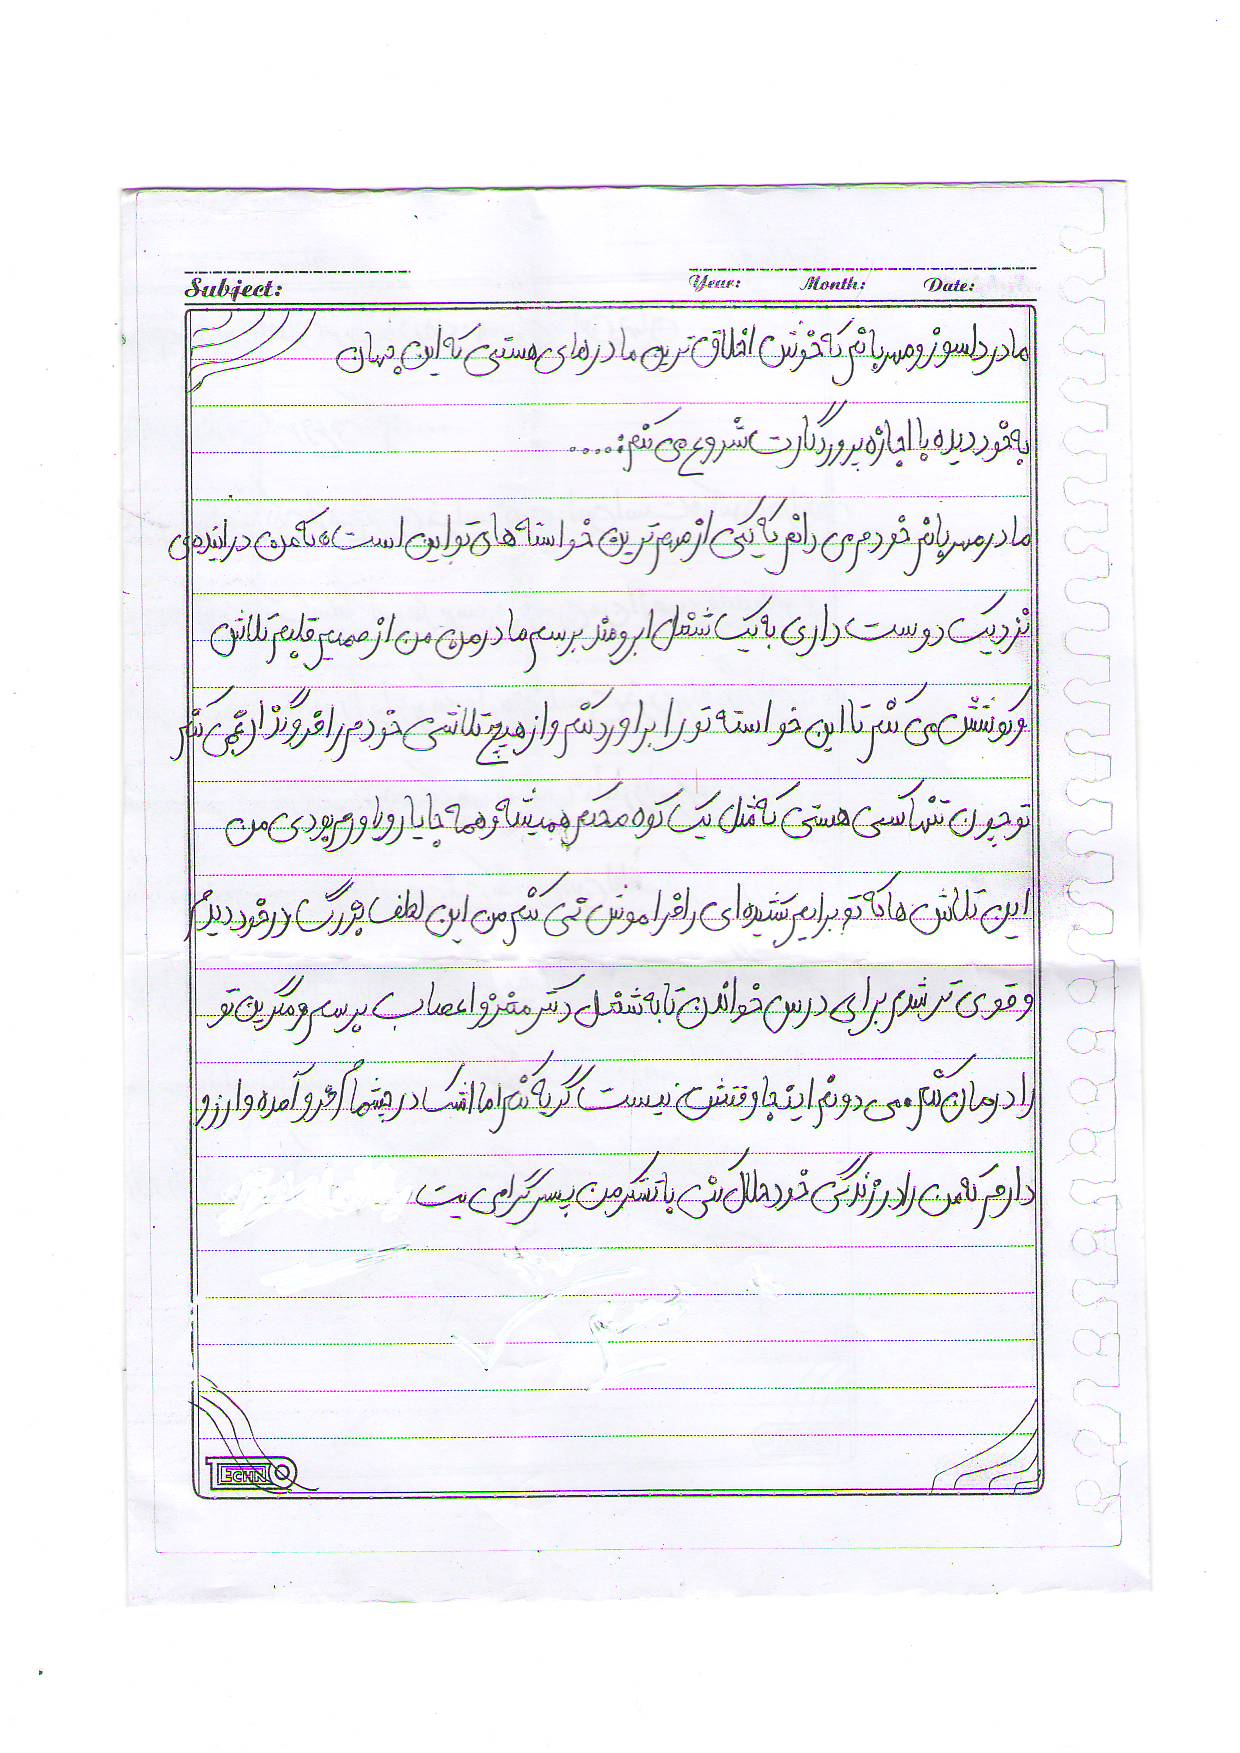 Subject: Year: Month: Date:
مادر دلسوز و مهربانم که خوش اخلاق ترین مادرهای هستی که این جهان
به خود دیده با اجازه پروردگارت شروع می کنم:....
مادر مهربانم خودم می دانم که یکی از مهم ترین خواسته های تو این است که من در اینده ی
نزدیک دوست داری به یک شغل ابرومند برسم مادر من من از صمیم قلبم تلاش
و کوشش می کنم تا این خواسته تو را براورد کنم و از هیچ تلاشی خودم را فروگذار نمی کنم
تو چون تنها کسی هستی که مثل یک کوه محکم همیشه و همه جا یارویاورم بودی من
این تلاش ها که تو برایم کشیده ای را فراموش نمی کنم من این لطف بزرگ در خود دیدم
و قوی تر شدم برای درس خواندن تا به شغل دکتر مغز و اعصاب برسم و میگرین تو
را درمان کنم. می دونم اینجا وقتش نیست گریه کنم اما اشک در چشمام فرو آمده و ارزو
دارم که من را در زندگی خود حلال کنی با تشکر من پسر گرامی یت
TECHNO